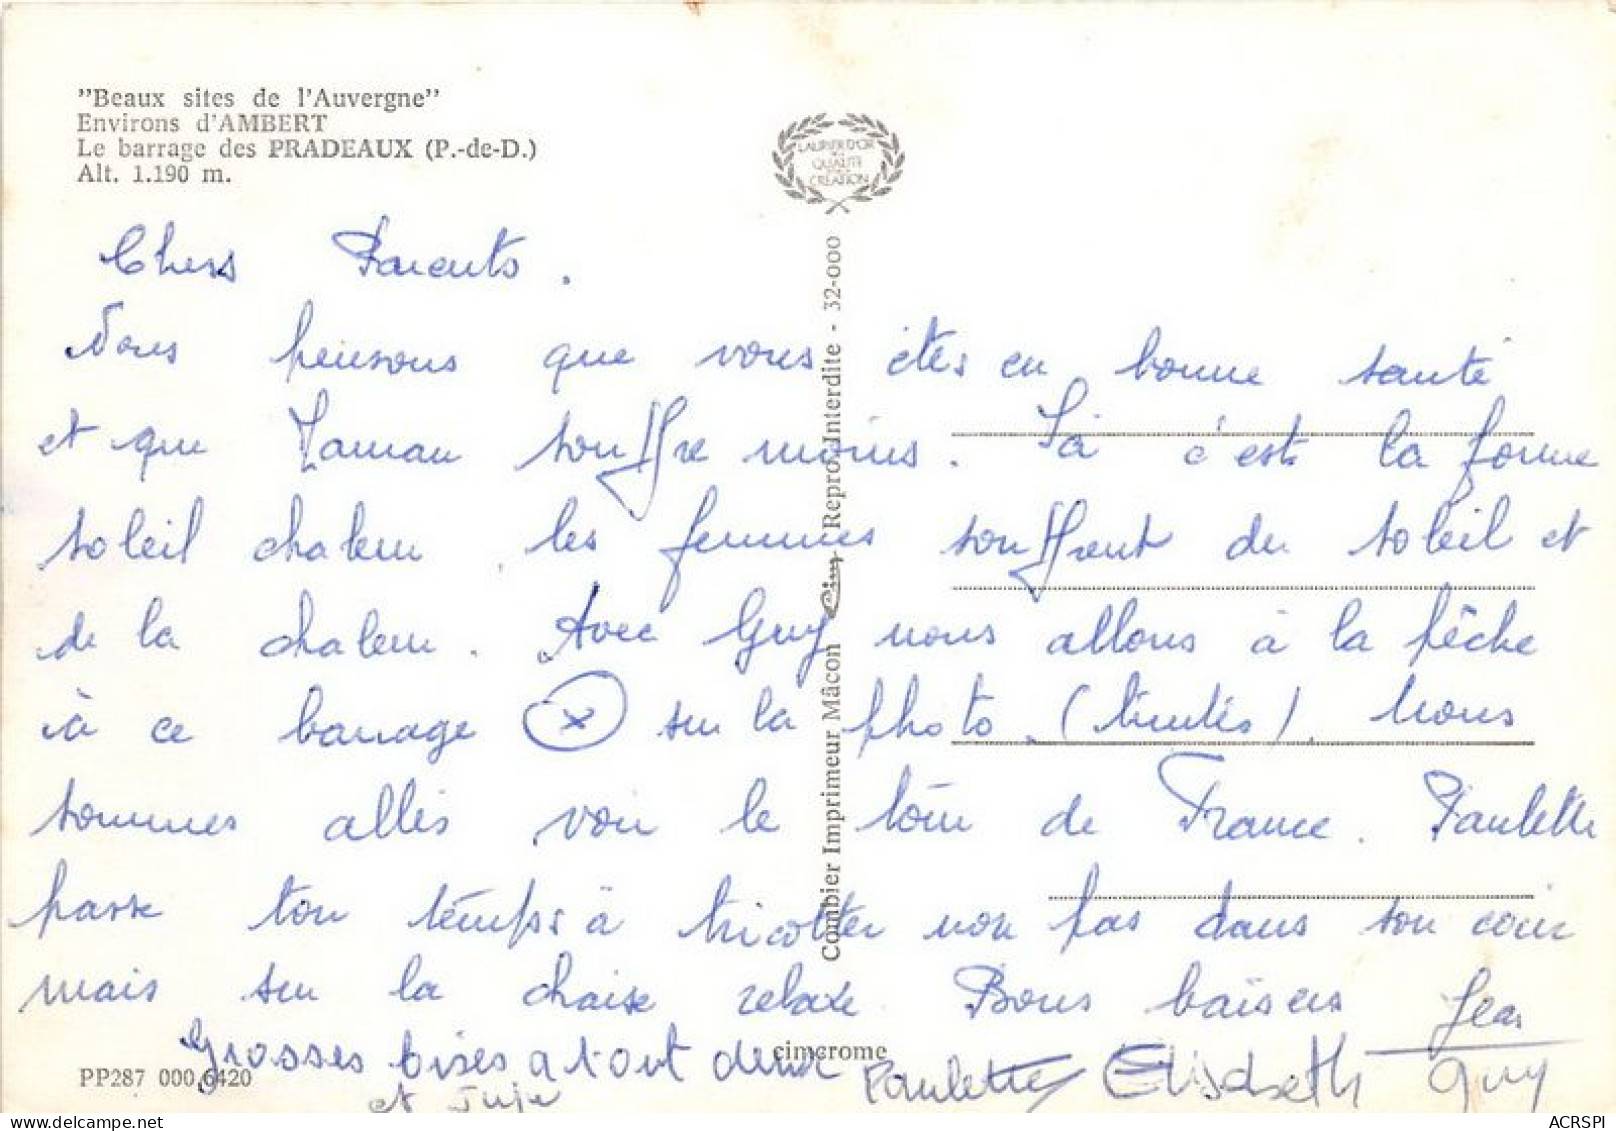 "Beaux sites de l'Auvergne"
Environs d'AMBERT
Le barrage des PRADEAUX (P.-de-D.)
Alt. 1.190 m.
LAURIER D'OR
QUALITE
CREATION
Chers Parents.
Nous pensons que vous êtes en bonne santé
et que Maman souffre moins. Ici c'est la forme
soleil chaleur, les femmes souffrent du soleil et
de la chaleur. Avec Guy nous allons à la pêche
à ce barrage (x) sur la photo. (truites). Nous
sommes allés voir le tour de France. Paulette
passe son temps à tricotter non pas dans son coin
mais sur la chaise relaxe. Bons baisers Jean
Grosses bises a tout deux Paulette Elisabeth Guy
et Juju
Combier Imprimeur Mâcon Cim Repro Interdite - 32-000
cimcrome
PP287 000 6420
ACRSPI